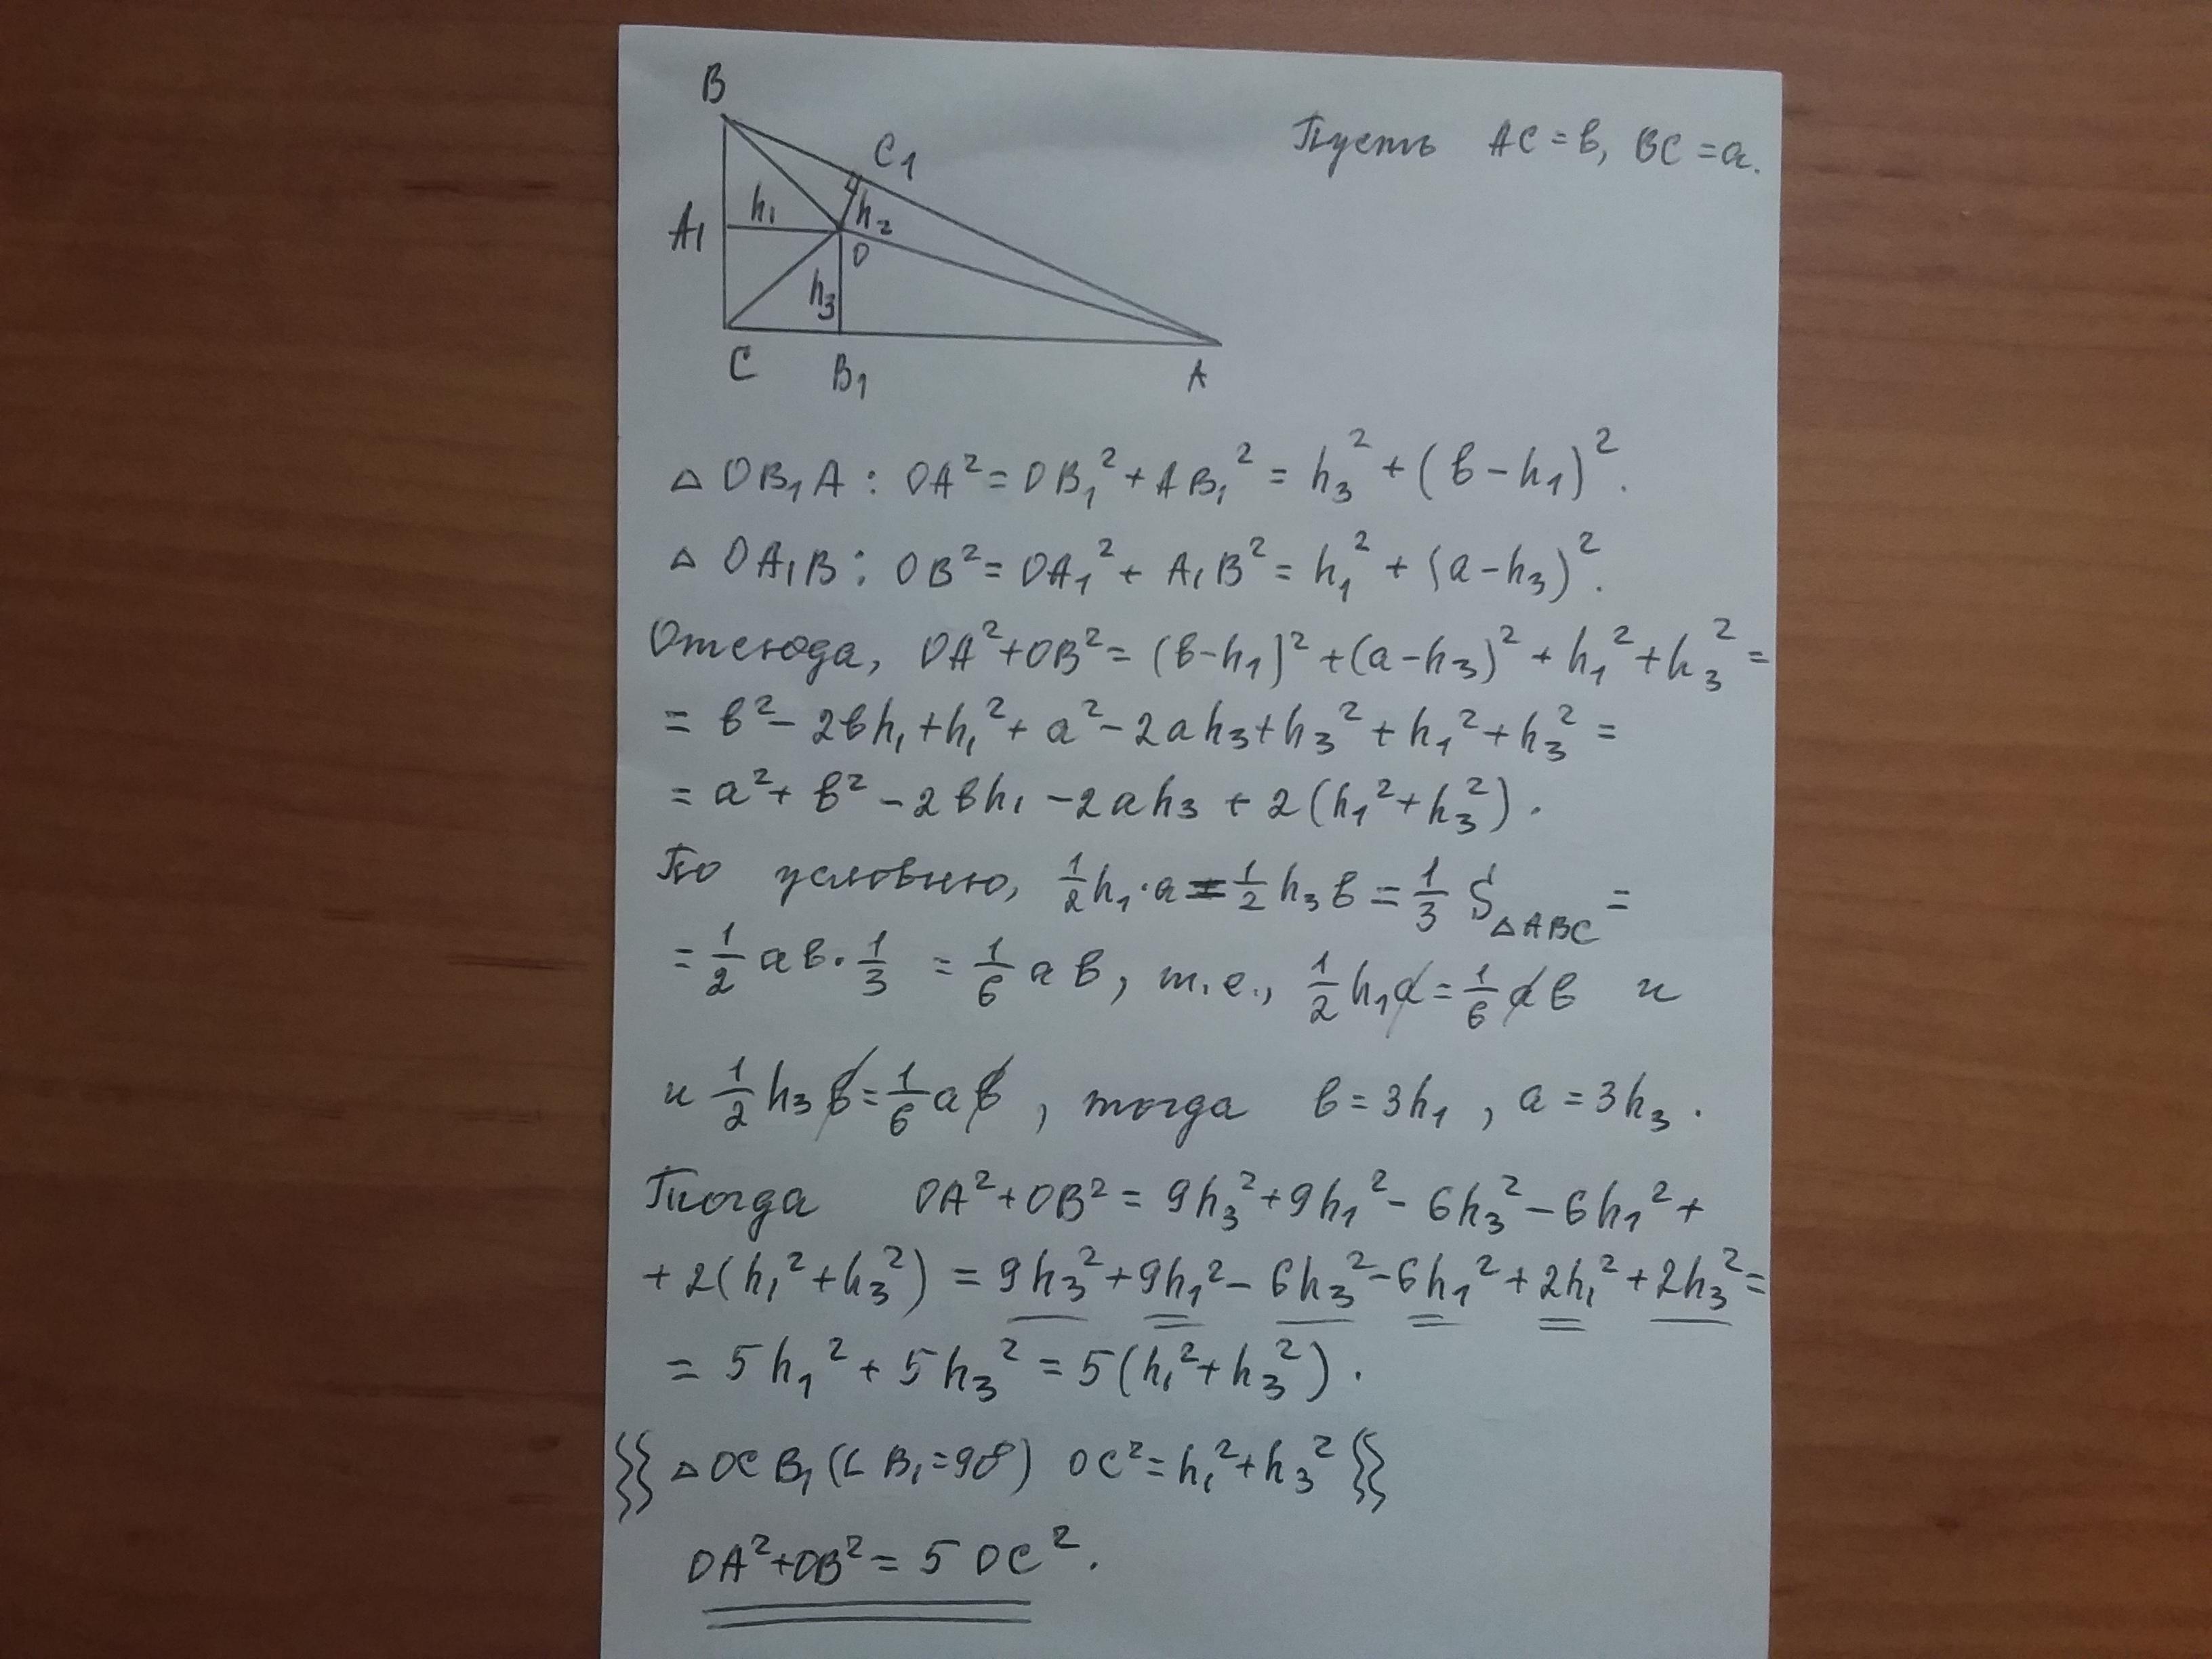 B
C₁
Пусть AC = в, BC = a.
A₁ h₁ h₂
O
h₃
C B₁ A
△ OB₁A : OA² = OB₁² + AB₁² = h₃² + (в - h₁)².
△ OA₁B : OB² = OA₁² + A₁B² = h₁² + (a - h₃)².
Отсюда, OA² + OB² = (в - h₁)² + (a - h₃)² + h₁² + h₃² =
= в² - 2вh₁ + h₁² + a² - 2ah₃ + h₃² + h₁² + h₃² =
= a² + в² - 2вh₁ - 2ah₃ + 2(h₁² + h₃²).
По условию, 1/2 h₁·a = 1/2 h₃в = 1/3 S△ABC =
= 1/2 aв · 1/3 = 1/6 aв, т.е., 1/2 h₁a = 1/6 aв и
и 1/2 h₃в = 1/6 aв, тогда в = 3h₁, a = 3h₃.
Тогда OA² + OB² = 9h₃² + 9h₁² - 6h₃² - 6h₁² +
+ 2(h₁² + h₃²) = 9h₃² + 9h₁² - 6h₃² - 6h₁² + 2h₁² + 2h₃² =
= 5h₁² + 5h₃² = 5(h₁² + h₃²).
△OCB₁ (∠B₁ = 90°) OC² = h₁² + h₃²
OA² + OB² = 5 OC².